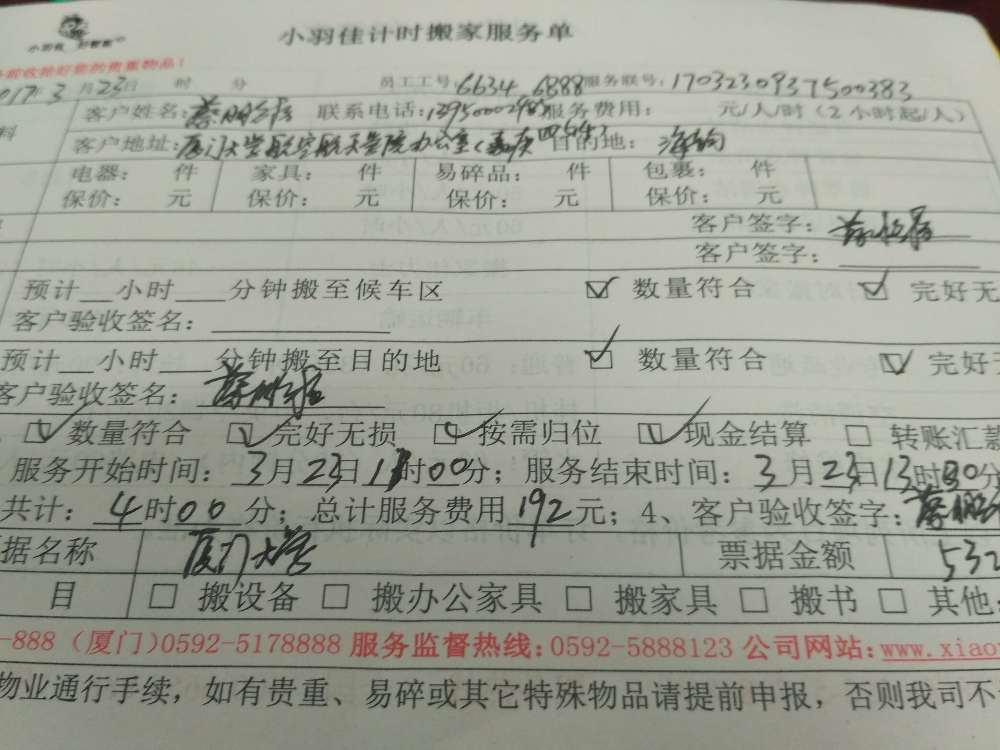 小羽佳计时搬家服务单
小羽佳 好管家
前收拾好您的贵重物品!
2017年3月23日 时 分 员工工号:6634 6888 服务联号:1703230937500383
料 客户姓名: 联系电话: 服务费用: 元/人/时(2小时起/人)
客户地址:厦门大学航空航天学院办公室(嘉庚四 目的地:海韵
电器: 件 家具: 件 易碎品: 件 包裹: 件
保价: 元 保价: 元 保价: 元 保价: 元
客户签字:
客户签字:
预计__小时___分钟搬至候车区 ☑ 数量符合 ☑ 完好无
客户验收签名:
预计__小时___分钟搬至目的地 ☑ 数量符合 ☑ 完好
客户验收签名:
☑ 数量符合 ☑ 完好无损 ☑ 按需归位 ☑ 现金结算 □ 转账汇款
服务开始时间:3月23日 时00分;服务结束时间:3月23日13时 分
共计:4时00分;总计服务费用192元;4、客户验收签字:
据名称 厦门大学 票据金额 532
目 □ 搬设备 □ 搬办公家具 □ 搬家具 □ 搬书 □ 其他:
-888 (厦门)0592-5178888 服务监督热线:0592-5888123 公司网站:www.xiao
物业通行手续,如有贵重、易碎或其它特殊物品请提前申报,否则我司不